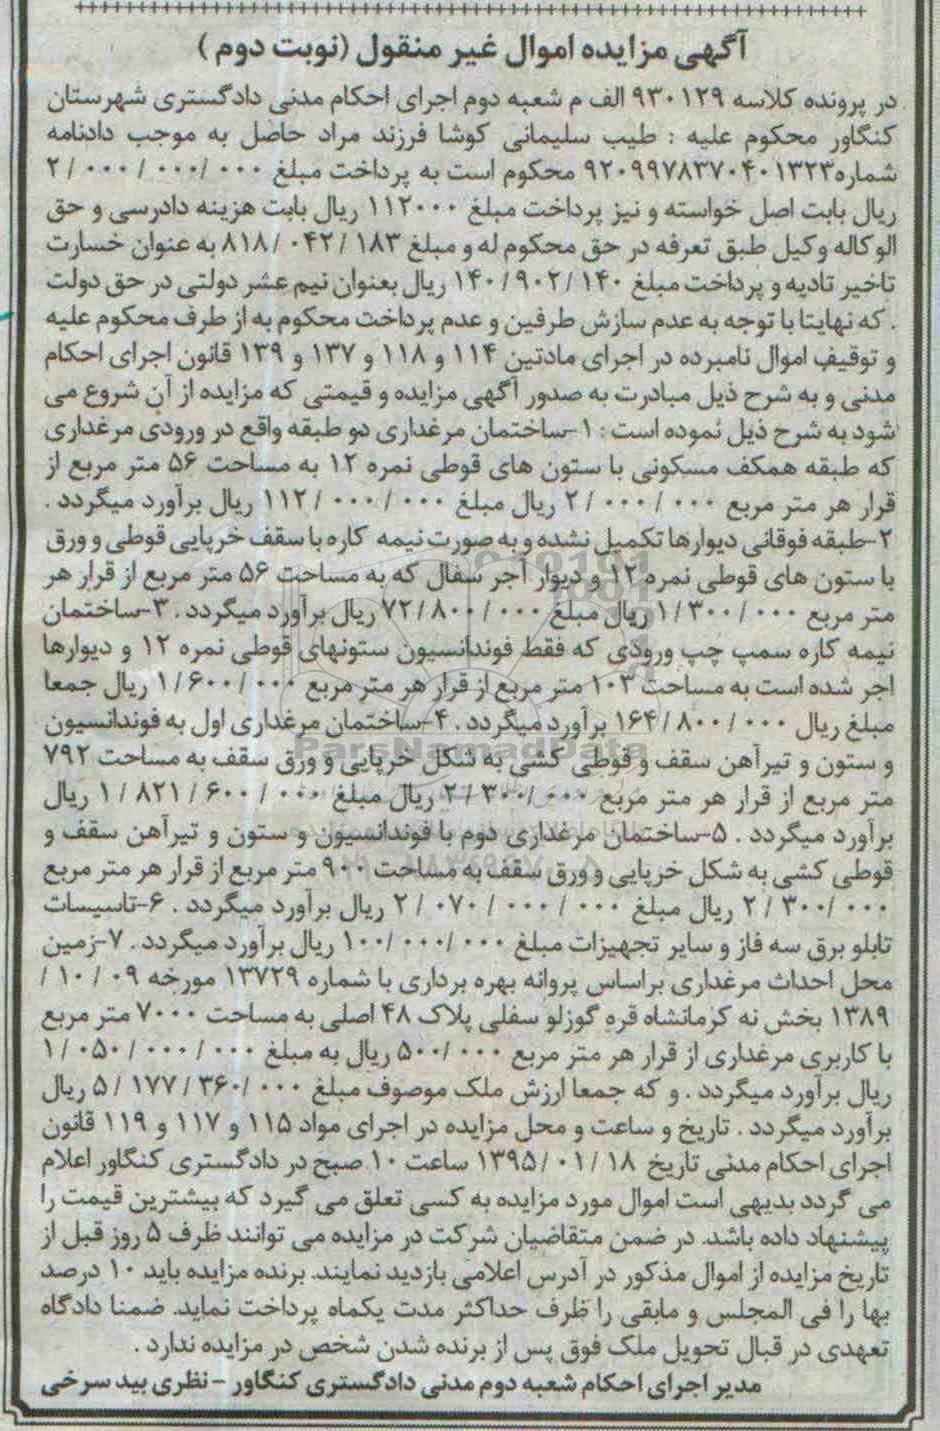 آگهی مزایده اموال غیر منقول (نوبت دوم )
در پرونده کلاسه ۹۳۰۱۲۹ الف م شعبه دوم اجرای احکام مدنی دادگستری شهرستان
کنگاور محکوم علیه : طیب سلیمانی کوشا فرزند مراد حاصل به موجب دادنامه
شماره۹۲۰۹۹۷۸۳۷۰۴۰۱۳۲۳ محکوم است به پرداخت مبلغ ۰۰۰ /۰۰۰ /۰۰۰ /۲
ریال بابت اصل خواسته و نیز پرداخت مبلغ ۱۱۲۰۰۰ ریال بابت هزینه دادرسی و حق
الوکاله وکیل طبق تعرفه در حق محکوم له و مبلغ ۱۸۳ /۰۴۲ /۸۱۸ به عنوان خسارت
تاخیر تادیه و پرداخت مبلغ ۱۴۰ /۹۰۲ /۱۴۰ ریال بعنوان نیم عشر دولتی در حق دولت
. که نهایتا با توجه به عدم سازش طرفین و عدم پرداخت محکوم به از طرف محکوم علیه
و توقیف اموال نامبرده در اجرای مادتین ۱۱۴ و ۱۱۸ و ۱۳۷ و ۱۳۹ قانون اجرای احکام
مدنی و به شرح ذیل مبادرت به صدور آگهی مزایده و قیمتی که مزایده از آن شروع می
شود به شرح ذیل نموده است : ۱-ساختمان مرغداری دو طبقه واقع در ورودی مرغداری
که طبقه همکف مسکونی با ستون های قوطی نمره ۱۲ به مساحت ۵۶ متر مربع از
قرار هر متر مربع ۰۰۰ /۰۰۰ /۲ ریال مبلغ ۰۰۰ /۰۰۰ /۱۱۲ ریال برآورد میگردد .
۲-طبقه فوقانی دیوارها تکمیل نشده و به صورت نیمه کاره با سقف خرپایی قوطی و ورق
با ستون های قوطی نمره ۱۲ و دیوار آجر سفال که به مساحت ۵۶ متر مربع از قرار هر
متر مربع ۰۰۰ /۳۰۰ /۱ ریال مبلغ ۰۰۰ /۸۰۰ /۷۲ ریال برآورد میگردد . ۳-ساختمان
نیمه کاره سمپ چپ ورودی که فقط فوندانسیون ستونهای قوطی نمره ۱۲ و دیوارها
اجر شده است به مساحت ۱۰۳ متر مربع از قرار هر متر مربع ۰۰۰ /۶۰۰ /۱ ریال جمعا
مبلغ ریال ۰۰۰ /۸۰۰ /۱۶۴ برآورد میگردد . ۴-ساختمان مرغداری اول به فوندانسیون
ParsNamadData
و ستون و تیرآهن سقف و قوطی کشی به شکل خرپایی و ورق سقف به مساحت ۷۹۲
متر مربع از قرار هر متر مربع ۰۰۰ /۳۰۰ /۲ ریال مبلغ ۰۰۰ /۶۰۰ /۸۲۱ /۱ ریال
برآورد میگردد . ۵-ساختمان مرغداری دوم با فوندانسیون و ستون و تیرآهن سقف و
قوطی کشی به شکل خرپایی و ورق سقف به مساحت ۹۰۰ متر مربع از قرار هر متر مربع
۰۰۰ /۳۰۰ /۲ ریال مبلغ ۰۰۰ /۰۰۰ /۰۷۰ /۲ ریال برآورد میگردد . ۶-تاسیسات
تابلو برق سه فاز و سایر تجهیزات مبلغ ۰۰۰ /۰۰۰ /۱۰۰ ریال برآورد میگردد . ۷-زمین
محل احداث مرغداری براساس پروانه بهره برداری با شماره ۱۳۷۲۹ مورخه ۰۹ /۱۰ /
۱۳۸۹ بخش نه کرمانشاه قره گوزلو سفلی پلاک ۴۸ اصلی به مساحت ۷۰۰۰ متر مربع
با کاربری مرغداری از قرار هر متر مربع ۰۰۰ /۵۰۰ ریال به مبلغ ۰۰۰ /۰۰۰ /۰۵۰ /۱
ریال برآورد میگردد . و که جمعا ارزش ملک موصوف مبلغ ۰۰۰ /۳۶۰ /۱۷۷ /۵ ریال
برآورد میگردد . تاریخ و ساعت و محل مزایده در اجرای مواد ۱۱۵ و ۱۱۷ و ۱۱۹ قانون
اجرای احکام مدنی تاریخ ۱۸ /۰۱ /۱۳۹۵ ساعت ۱۰ صبح در دادگستری کنگاور اعلام
می گردد بدیهی است اموال مورد مزایده به کسی تعلق می گیرد که بیشترین قیمت را
پیشنهاد داده باشد. در ضمن متقاضیان شرکت در مزایده می توانند ظرف ۵ روز قبل از
تاریخ مزایده از اموال مذکور در آدرس اعلامی بازدید نمایند. برنده مزایده باید ۱۰ درصد
بها را فی المجلس و مابقی را ظرف حداکثر مدت یکماه پرداخت نماید. ضمنا دادگاه
تعهدی در قبال تحویل ملک فوق پس از برنده شدن شخص در مزایده ندارد .
مدیر اجرای احکام شعبه دوم مدنی دادگستری کنگاور -نظری بید سرخی